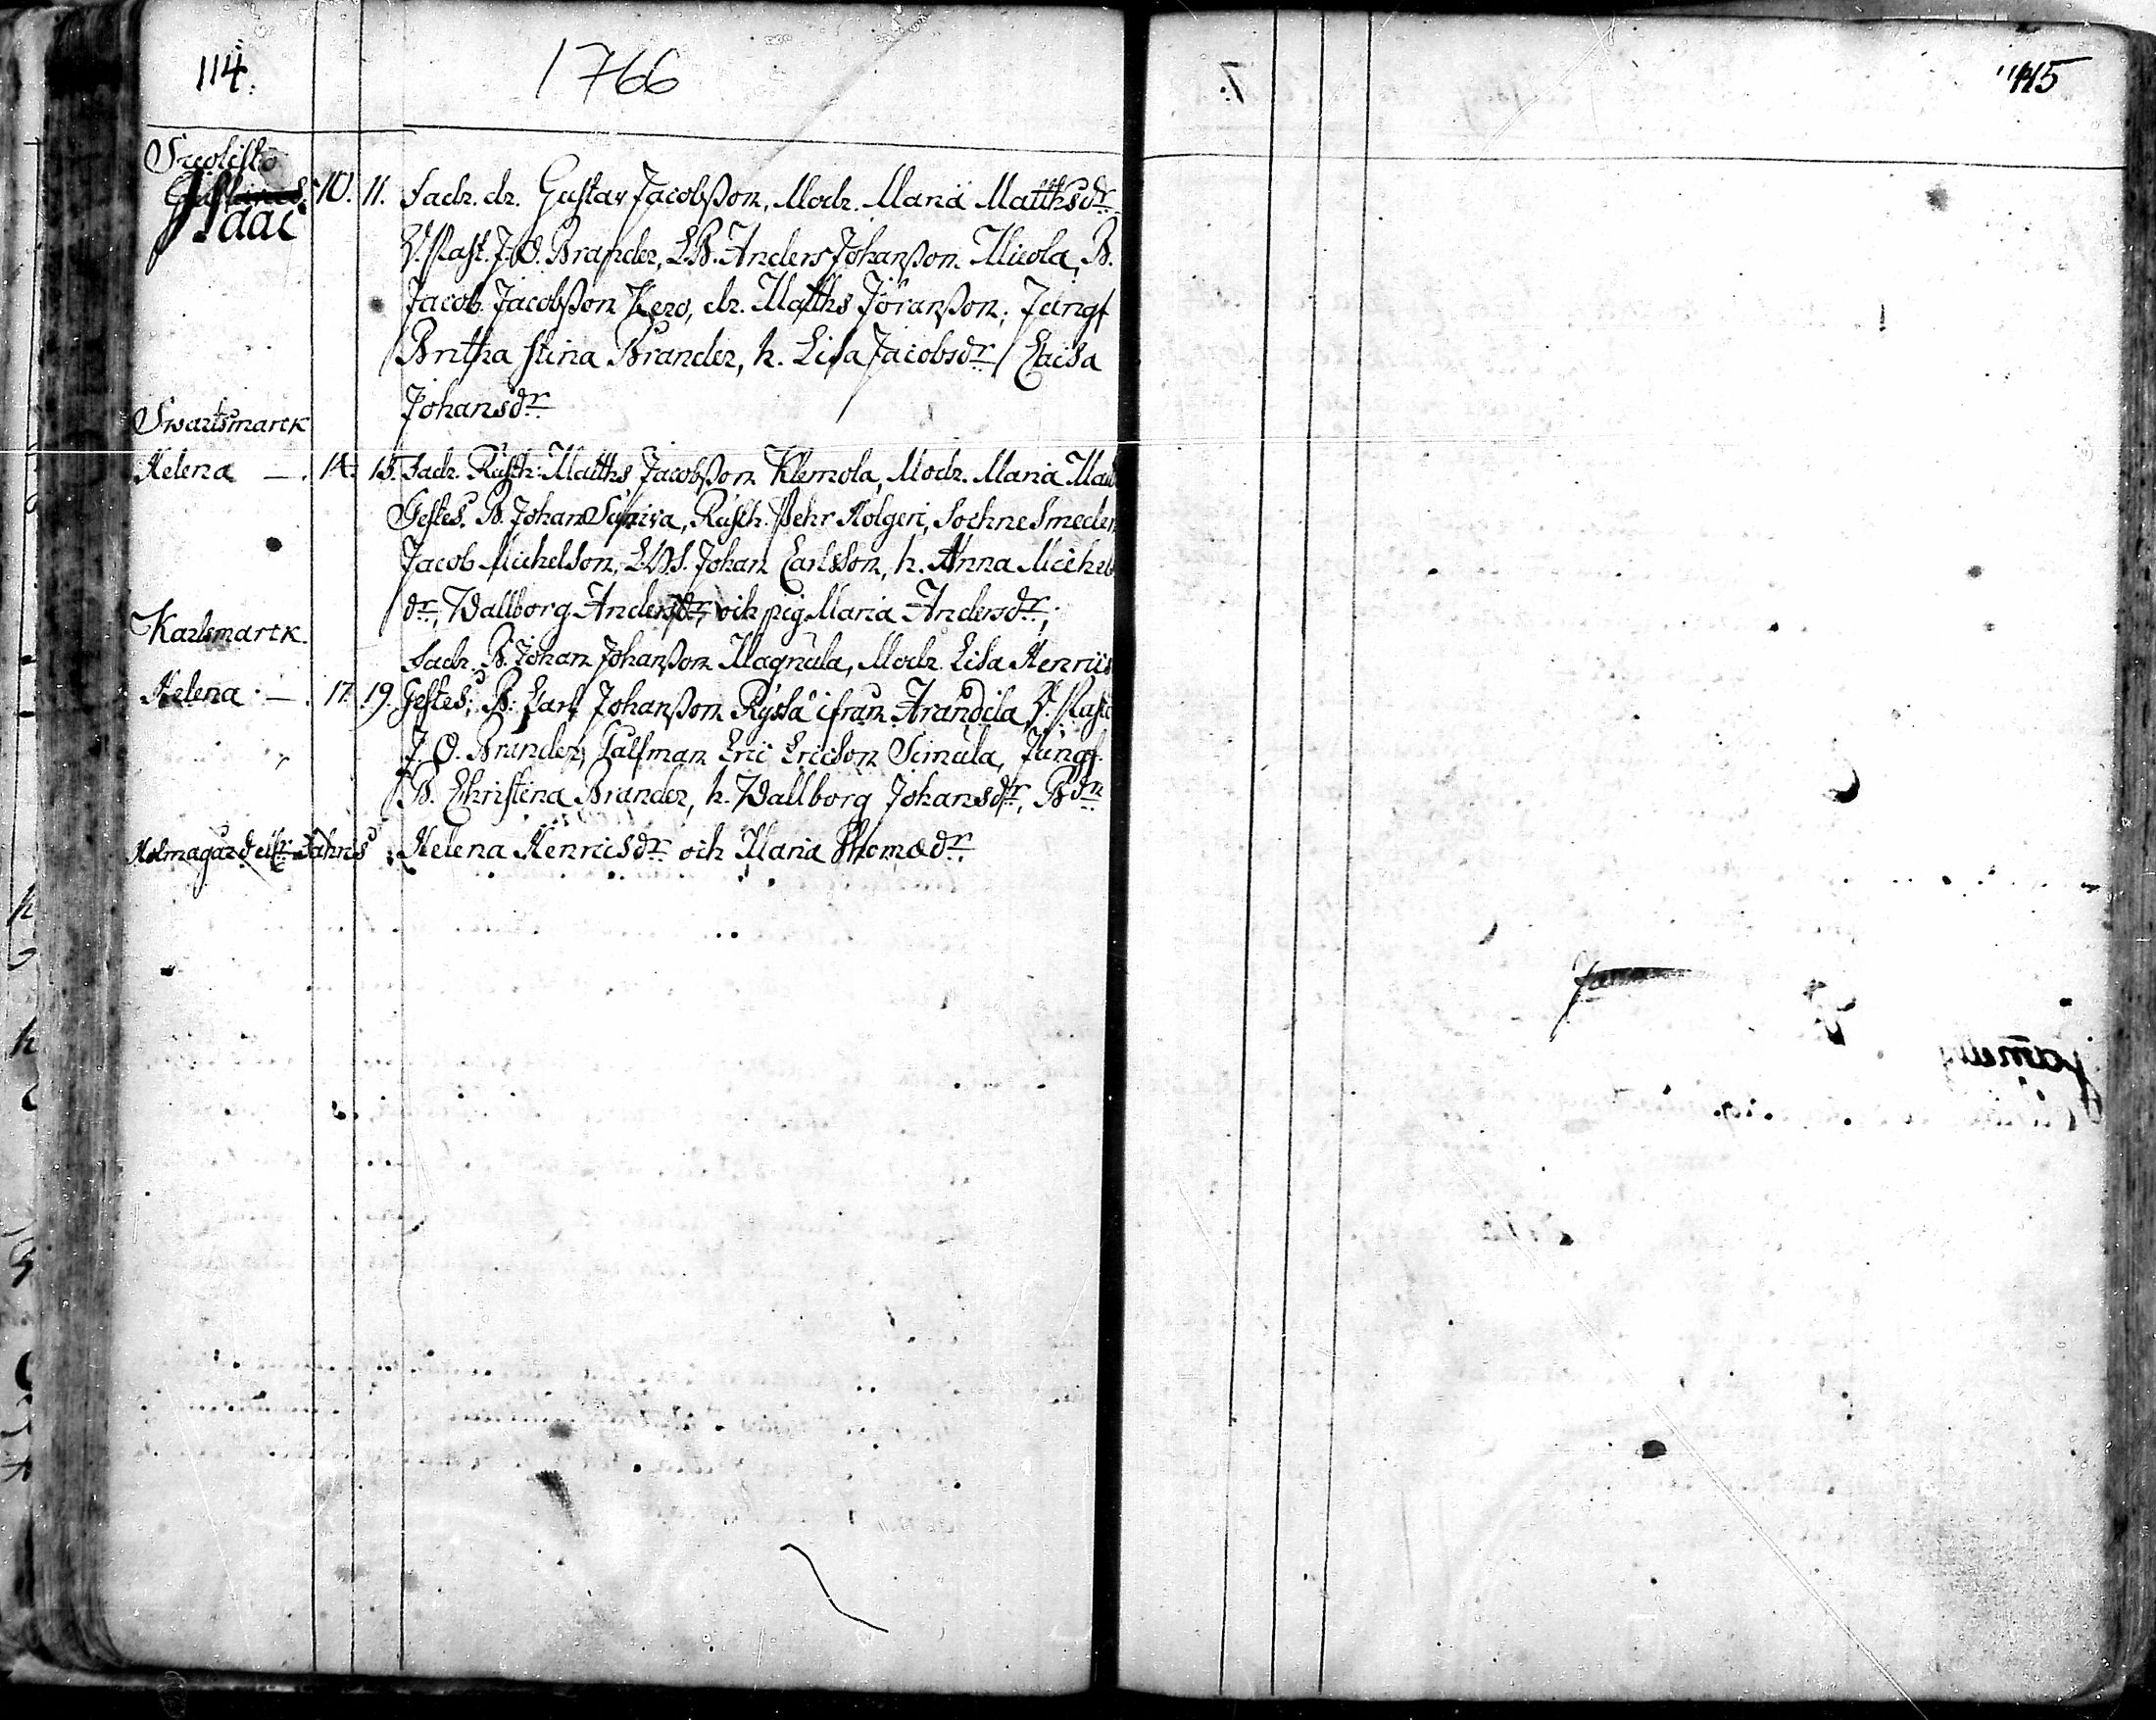 114.
1766
Isaac 10. 11. Fadr. dr. Gustav Jacobsson, Modr. Maria Matthsdr
V. Past. J. O. Brander, LB. Anders Johansson Micola, B.
Jacob Jacobsson Kero, dr. Matths Jöransson, Jungf
Britha Stina Brander, h. Lisa Jacobsdr, Caisa
Johansdr
Swartsmarck
Helena — 14. 15. Fadr. Rusth. Matths Jacobsson Klemola, Modr. Maria
Testes. B. Johan, Rusth. Pehr Kolgeri, Sochne Smeden
Jacob Michelson, Johan Carlsson, h. Anna Michels
dr, Wallborg Andersdr, och pig Maria Andersdr,
Karlsmarck.
Fadr. B. Johan Johansson Magnula, Modr. Lisa Henrics
Helena — 17. 19. Testes; B. Carl Johansson Ryssä ifrån Arandila V. Past
J. O. Brander, Eric Ericson Simula, Jungf.
B. Christina Brander, h. Wallborg Johansdr, Bdr
Helena Henricsdr och Maria Thomædr.
115